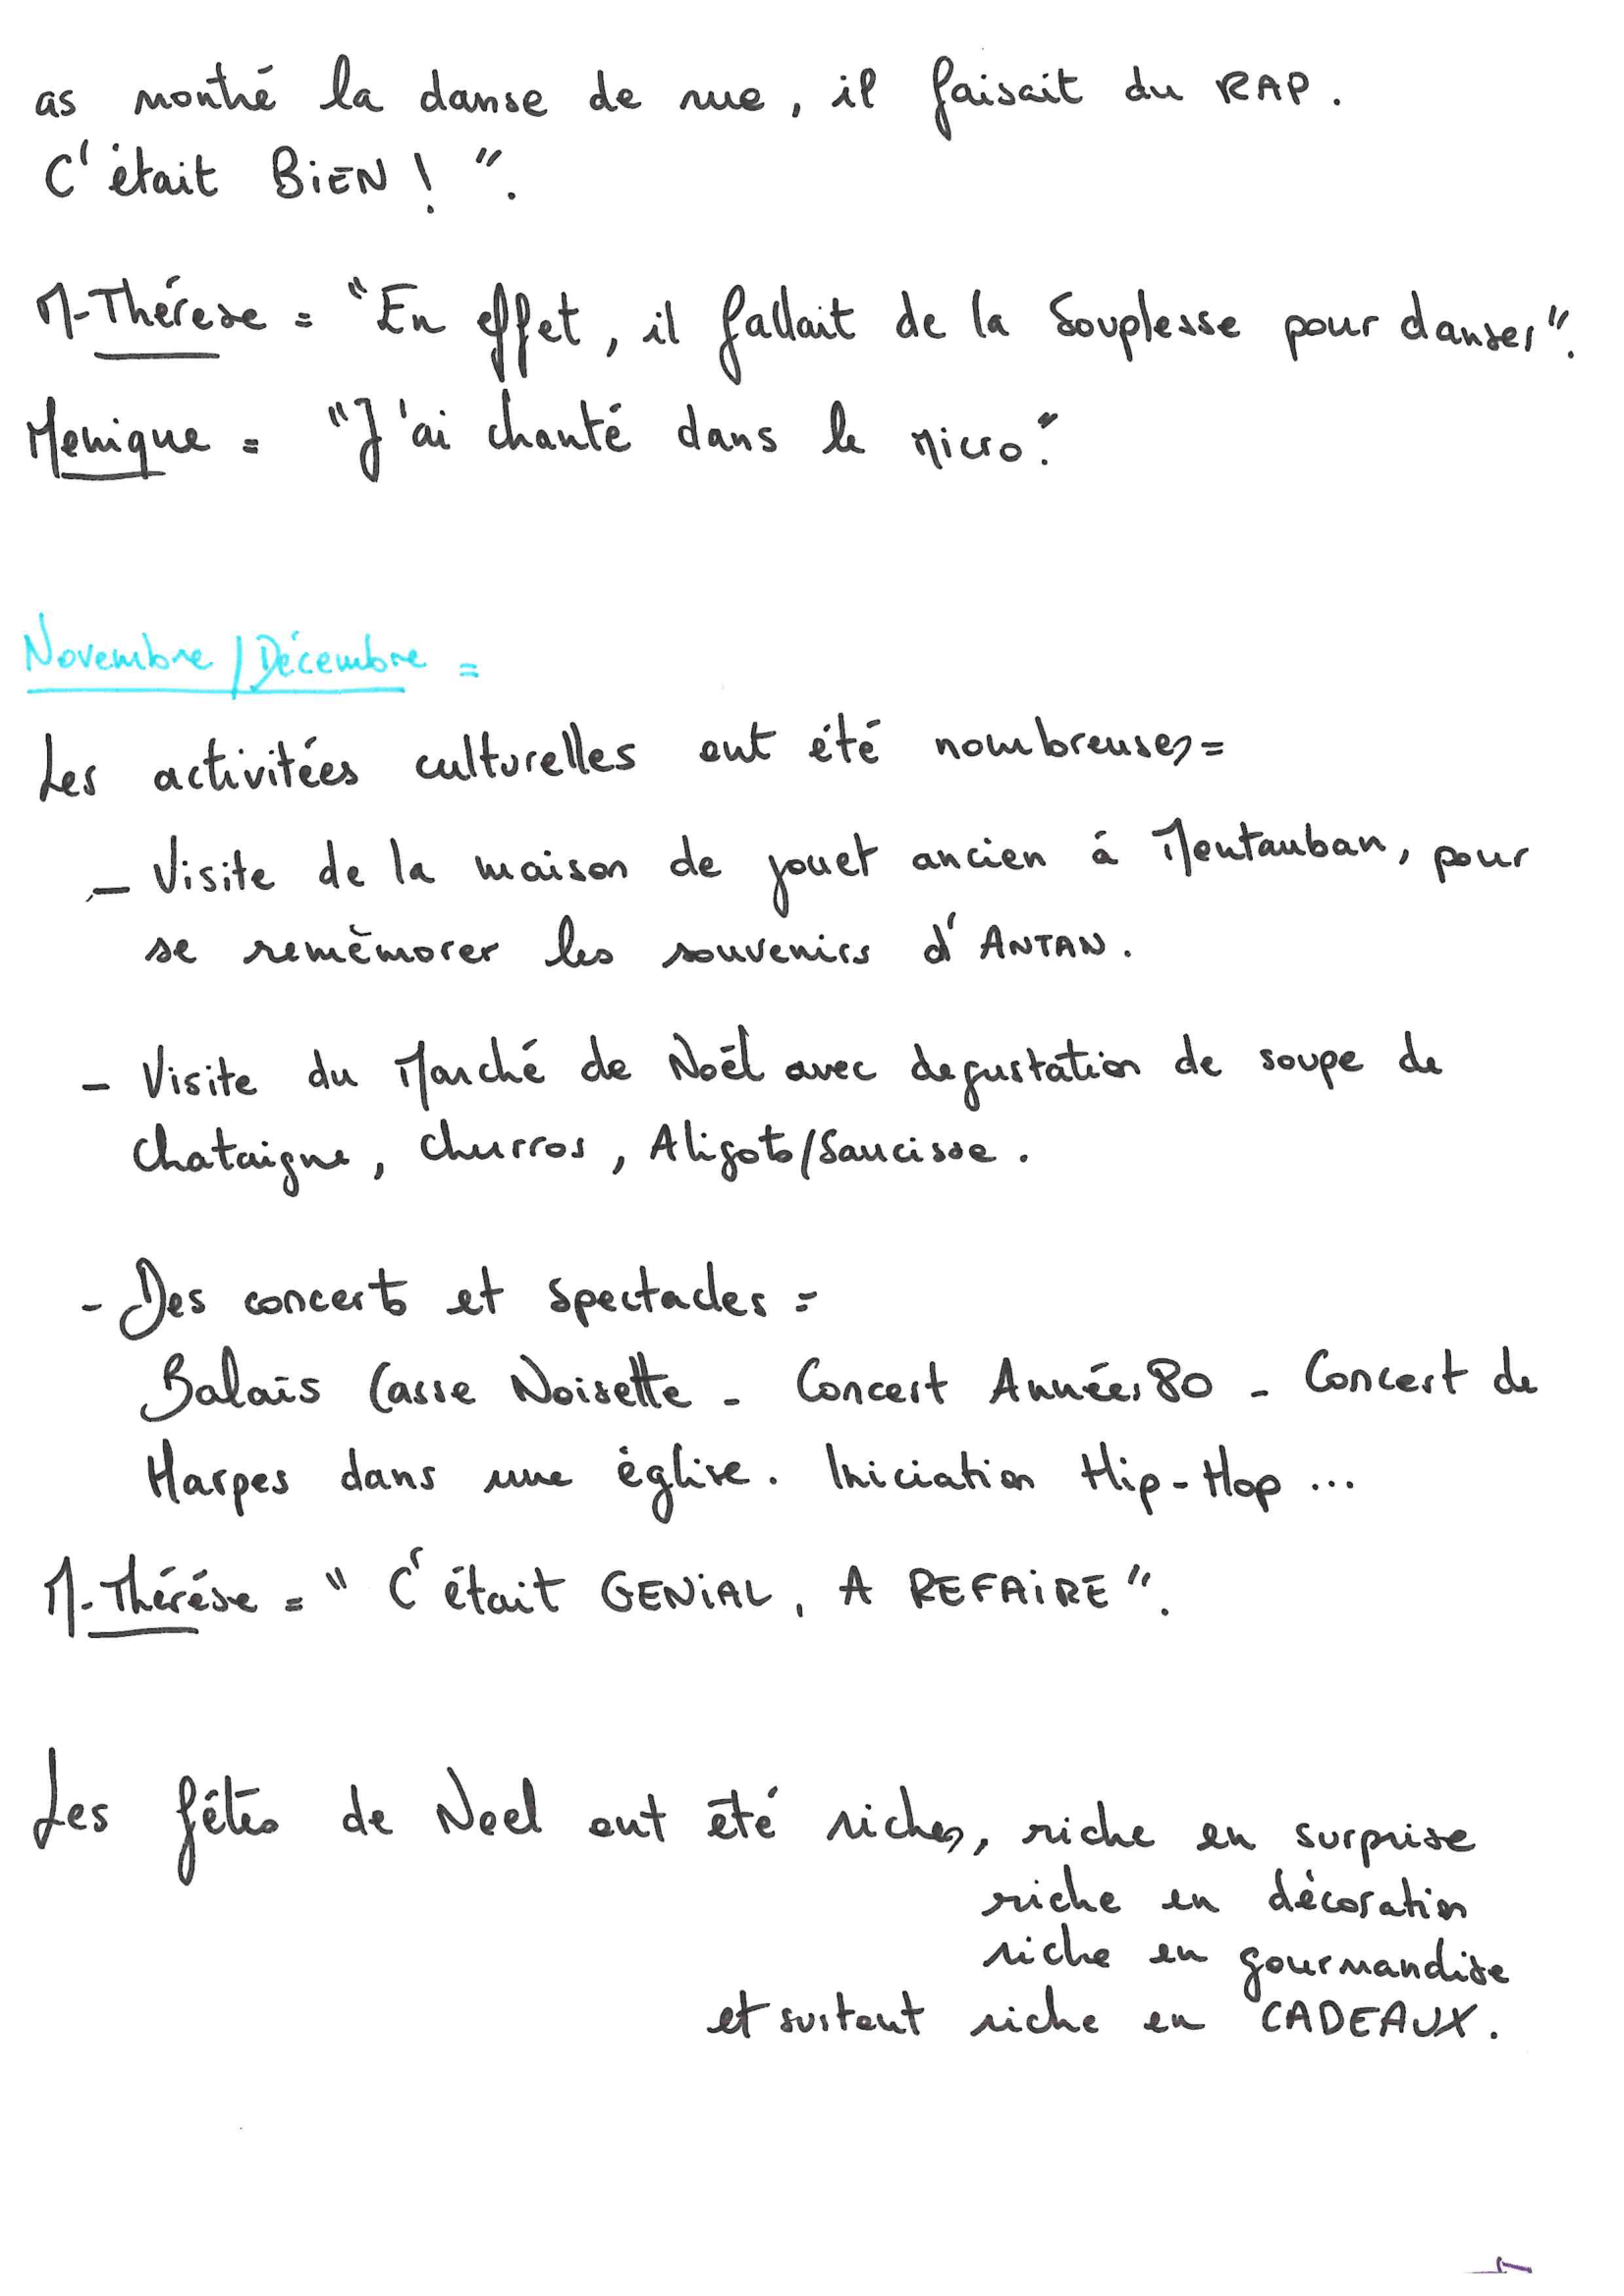 as montré la danse de rue, il faisait du RAP.
C'était BiEN ! ".
M-Thérese = "En effet, il fallait de la Souplesse pour danser".
Monique = "J'ai chanté dans le Micro."
Novembre / Décembre =
Les activitées culturelles ont été nombreuses =
- Visite de la maison de jouet ancien à Montauban, pour
se remèmorer les souvenirs d'ANTAN.
- Visite du Marché de Noël avec degustation de soupe de
chataigne, churros, Aligots/Saucisse.
- Des concerts et spectacles =
Balais Casse Noisette - Concert Années 80 - Concert de
Harpes dans une église. Iniciation Hip-Hop ...
M-Thérése = " C'était GENiAL, A REFAiRE".
Les fêtes de Noel ont été riches, riche en surprise
riche en décoration
riche en gourmandise
et surtout riche en CADEAUX.